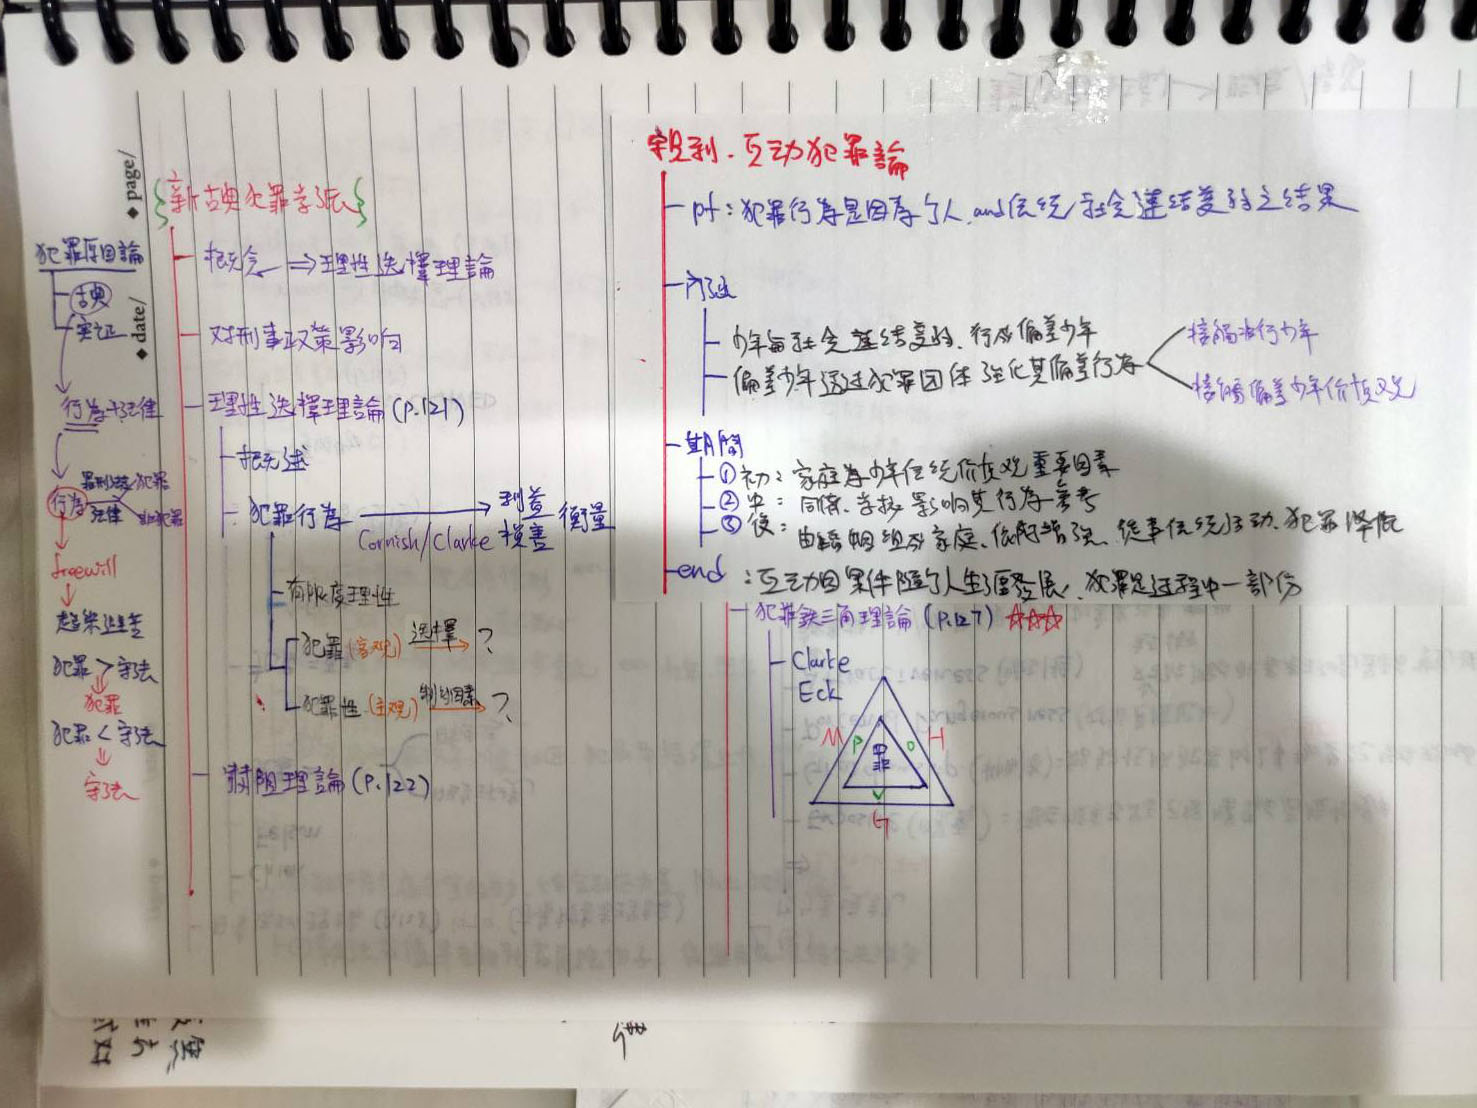 page/
date/
犯罪原因論
古典
實证
行為+法律
罪刑法定 犯罪
行為
法律
freewill
趨樂避苦
犯罪 > 守法
犯罪
犯罪 < 守法
守法
{新古典犯罪学派}
概念 ⇒ 理性选擇理論
对刑事政策影响
理性选擇理論(P.121)
概述
犯罪行為 → 利益 損害 衡量
Cornish/Clarke
有限度理性
犯罪(客观) 选擇 → ?
犯罪性(主观) 制約因素 → ?
嚇阻理論(P.122)
親利.互动犯罪論
pf:犯罪行為是因為个人 and 传统社会連结变弱之结果
内涵
少年与社会連结变弱、形成偏差少年
偏差少年透过犯罪团体强化其偏差行為
接觸非行少年
接觸偏差少年价值观
期間
①初:家庭為少年传统价值观重要因素
②中:同儕、学校影响其行為参考
③後:由婚姻组成家庭、依附增强、從事传统活动、犯罪降低
end:互动因果伴随个人生涯發展、犯罪是过程中一部份
犯罪鉄三角理論(P.127) ☆☆☆
Clarke
Eck
M P 犯罪 O H
V
G